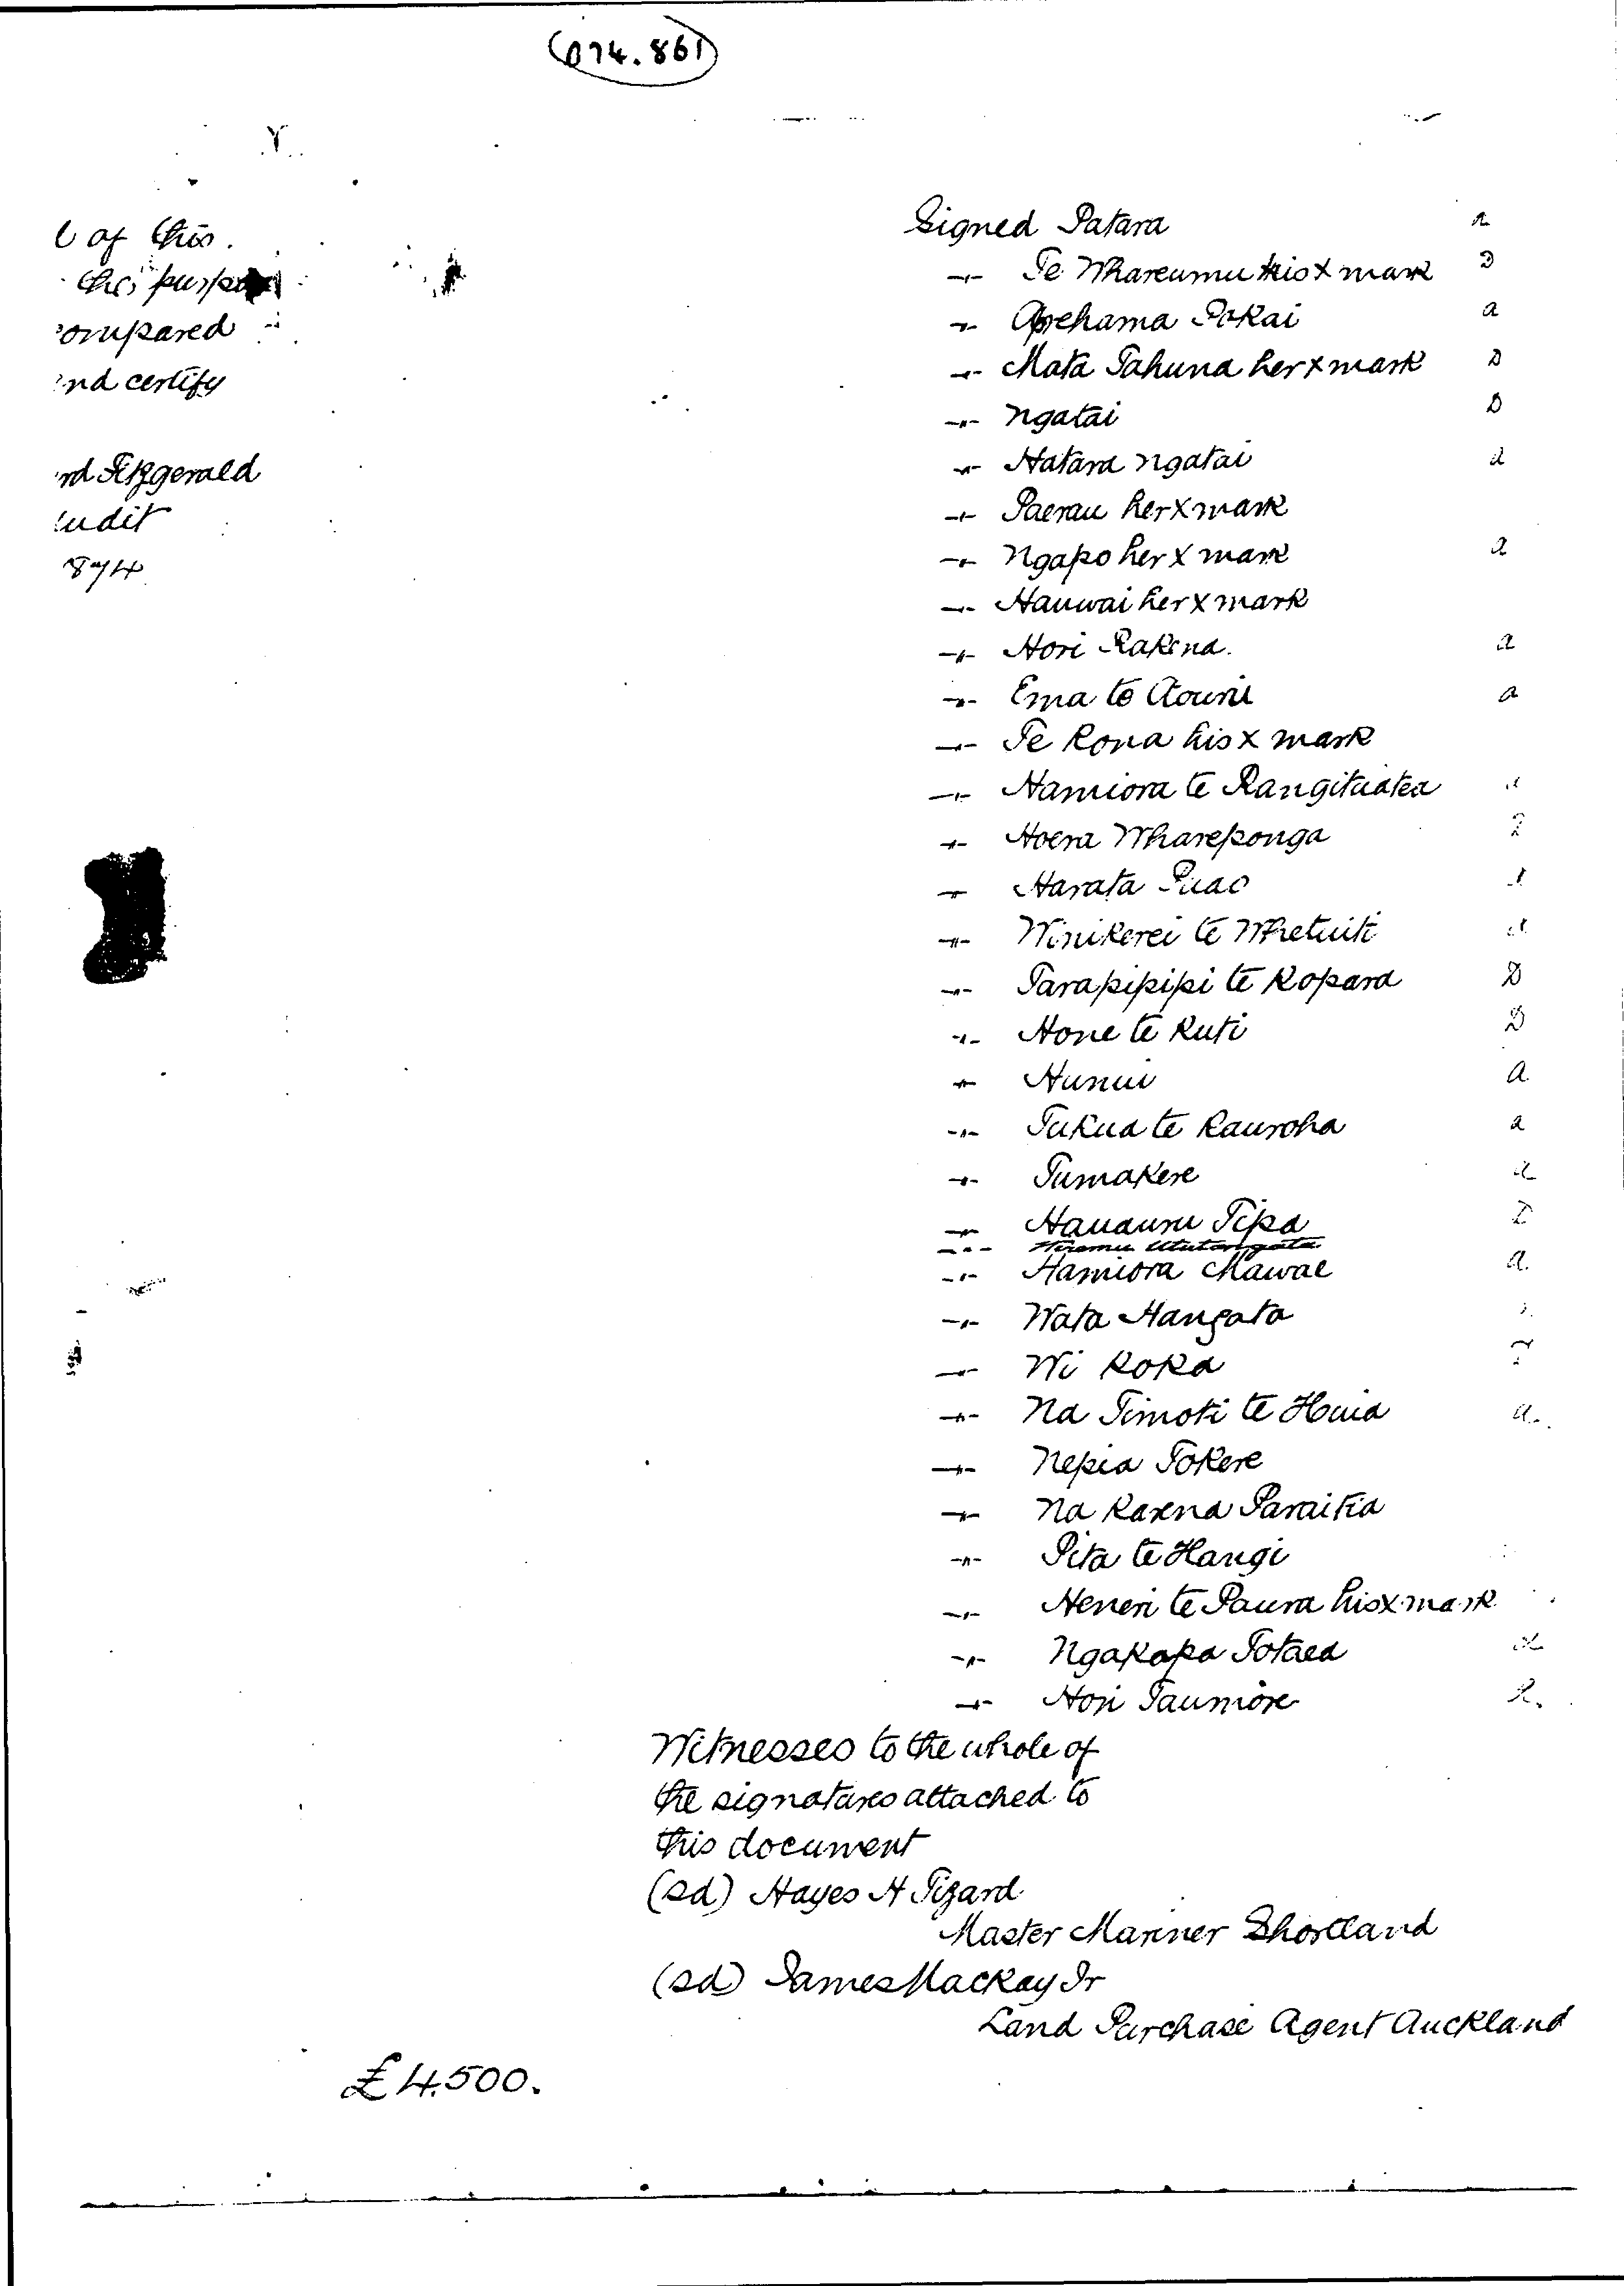 074.861
l of this.
compared
nd certify
rd Fitzgerald
udit
874
Signed Patara a
-"- Te Whareumu his x mark D
-"- Aperehama Pokai a
-"- Mata Tahuna her x mark D
-"- Ngatai D
-"- Hatara Ngatai a
-"- Paerau her x mark
-"- Ngapo her x mark a
-"- Hauwai her x mark
-"- Hori Rakena. a
-"- Ema te Aouru a
-"- Te Kona his x mark
-"- Hamiora te Rangituatea
-"- Hoera Whareponga
-"- Harata Puao
-"- Winikerei te Whetuiti
-"- Parapipipi te Kopara D
-"- Hone te Ruti D
-"- Hunui a
-"- Tukua te Rauroha a
-"- Tumakere a
-"- Hauauru Tipa D
-"- Hamiora Mawae a.
-"- Wata Hangata
-"- Wi Koka
-"- Na Timoti te Huia a.
-"- Nepia Tokere
-"- Na Karena Paraitia
-"- Pita te Hangi
-"- Heneri te Paura his x mark
-"- Ngakapa Totaea
-"- Hori Taumore
Witnesses to the whole of
the signatures attached to
this document
(sd) Hayes H Tizard
Master Mariner Shortland
(sd) James Mackay Jr
Land Purchase Agent Auckland
£4.500.